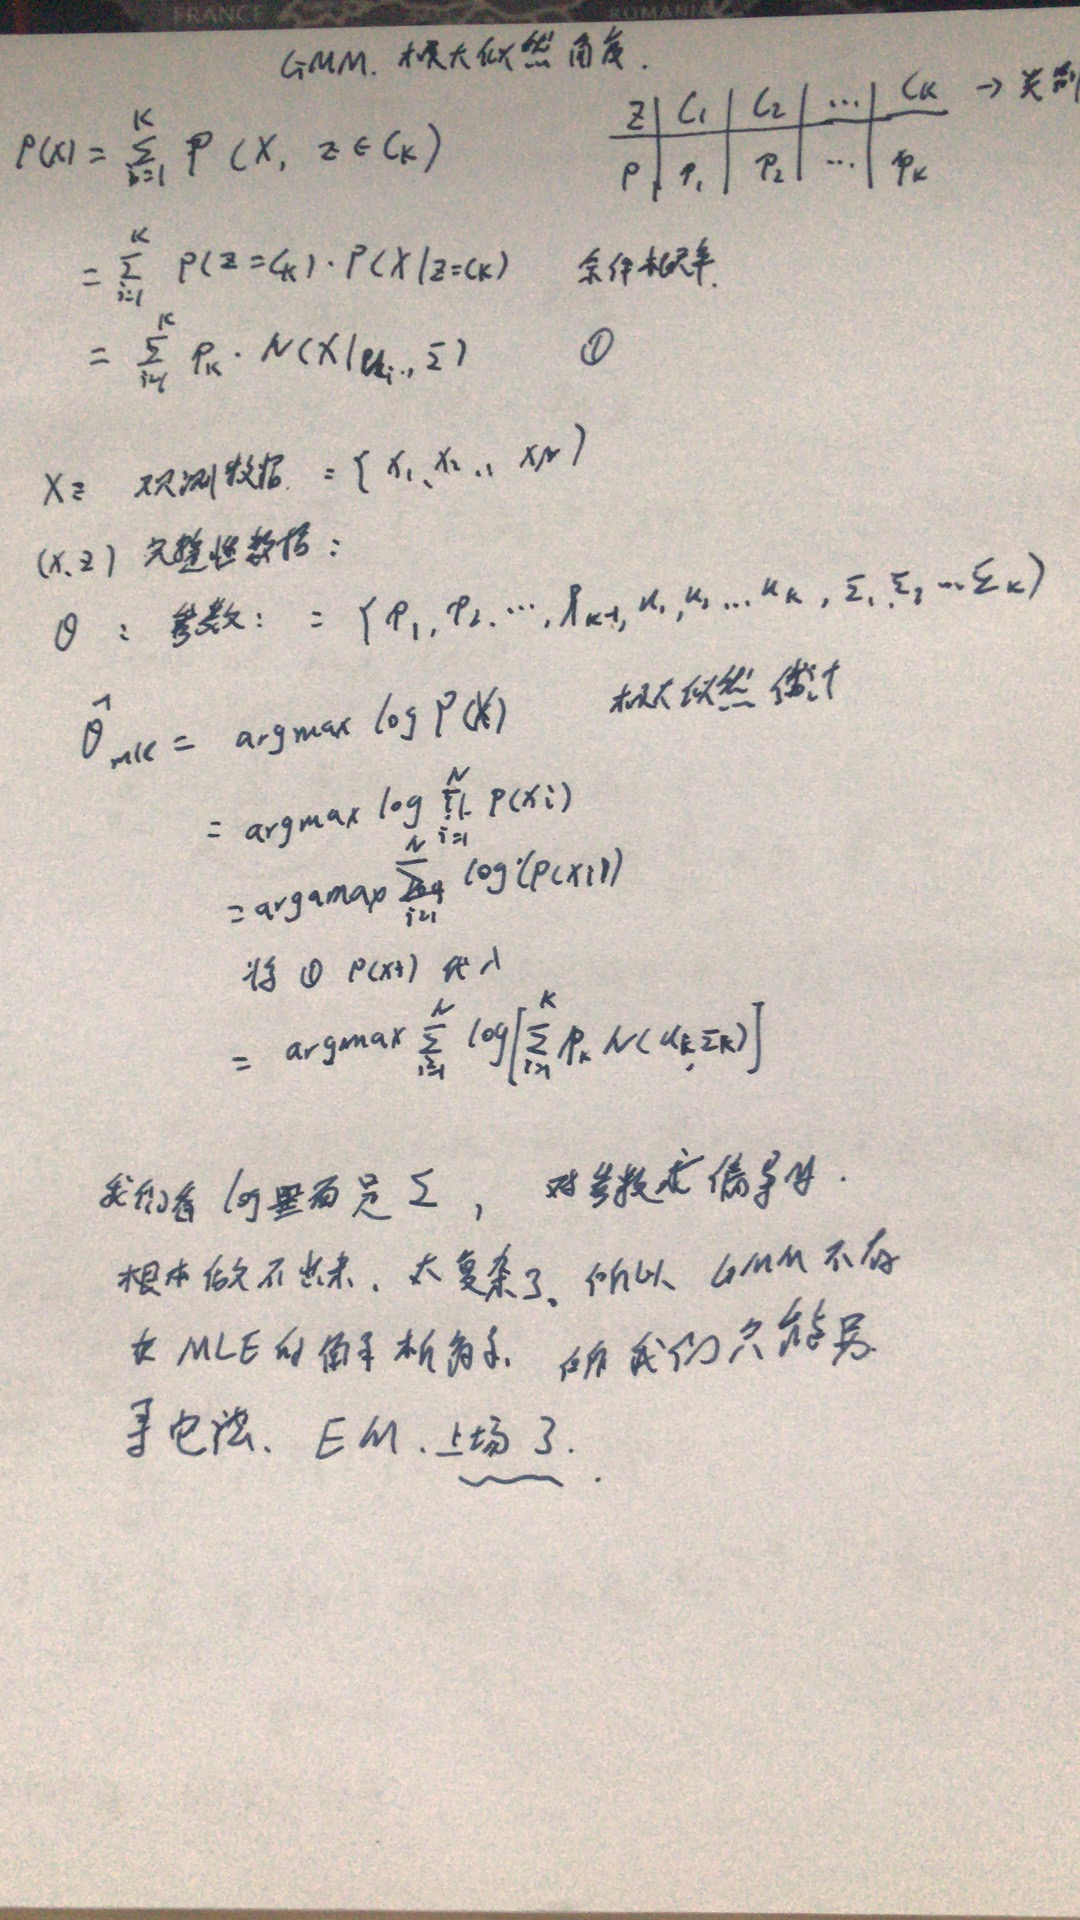 FRANCE ROMANIA
GMM. 极大似然角度.
Z | C₁ | C₂ | ... | Cₖ → 类别
P | P₁ | P₂ | ... | Pₖ
P(X) = ∑ᵢ₌₁ᴷ P(X, z∈Cₖ)
= ∑ᵢ₌₁ᴷ P(z=Cₖ)·P(X|z=Cₖ) 条件概率.
= ∑ᵢ₌₁ᴷ Pₖ·N(X|uᵢ., Σ) ①
X: 观测数据 = {x₁, x₂ .., x_N)
(X, z) 完整性数据:
θ : 参数: = {P₁, P₂, ..., P_{K-1}, u₁, u₂ ... u_K, Σ₁, Σ₂ ... Σ_K)
θ̂_MLE = argmax log P(X) 极大似然估计
= argmax log ∏ᵢ₌₁ᴺ P(xi)
= argamax ∑ᵢ₌₁ᴺ log(P(xi))
将 ① P(xi) 代入
= argmax ∑ᵢ₌₁ᴺ log[∑ᵢ₌₁ᴷ Pₖ N(uₖ, Σₖ)]
我们看 log里面是 Σ, 对参数求偏导时.
根本做不出来、太复杂了、所以 GMM 不存
在 MLE 的解析 我们只能
EM. 上场了.